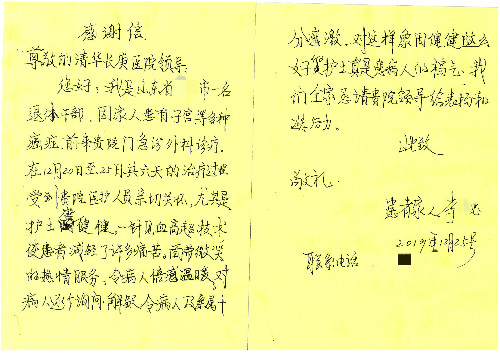 感谢信
尊敬的清华长庚医院领导
您好：我是山东省 市一名
退休干部，因家人患有子宫等多种
癌症，前来贵院门急诊外科诊疗。
在12月20日至25日共六天的治疗过程
受到贵院医护人员亲切关怀，尤其是
护士 健健，一针见血高超技术
使患者减轻了许多痛苦。面带微笑
的热情服务，令病人倍感温暖，对
病人逐个询问解疑，令病人及亲属十
分感激，对这样象田健健这么
好的护士真是患病人们福气，我
们全家恳请贵院领导给表扬和
奖励。
此致
敬礼
患者家人李
2019年12月25号
联系电话